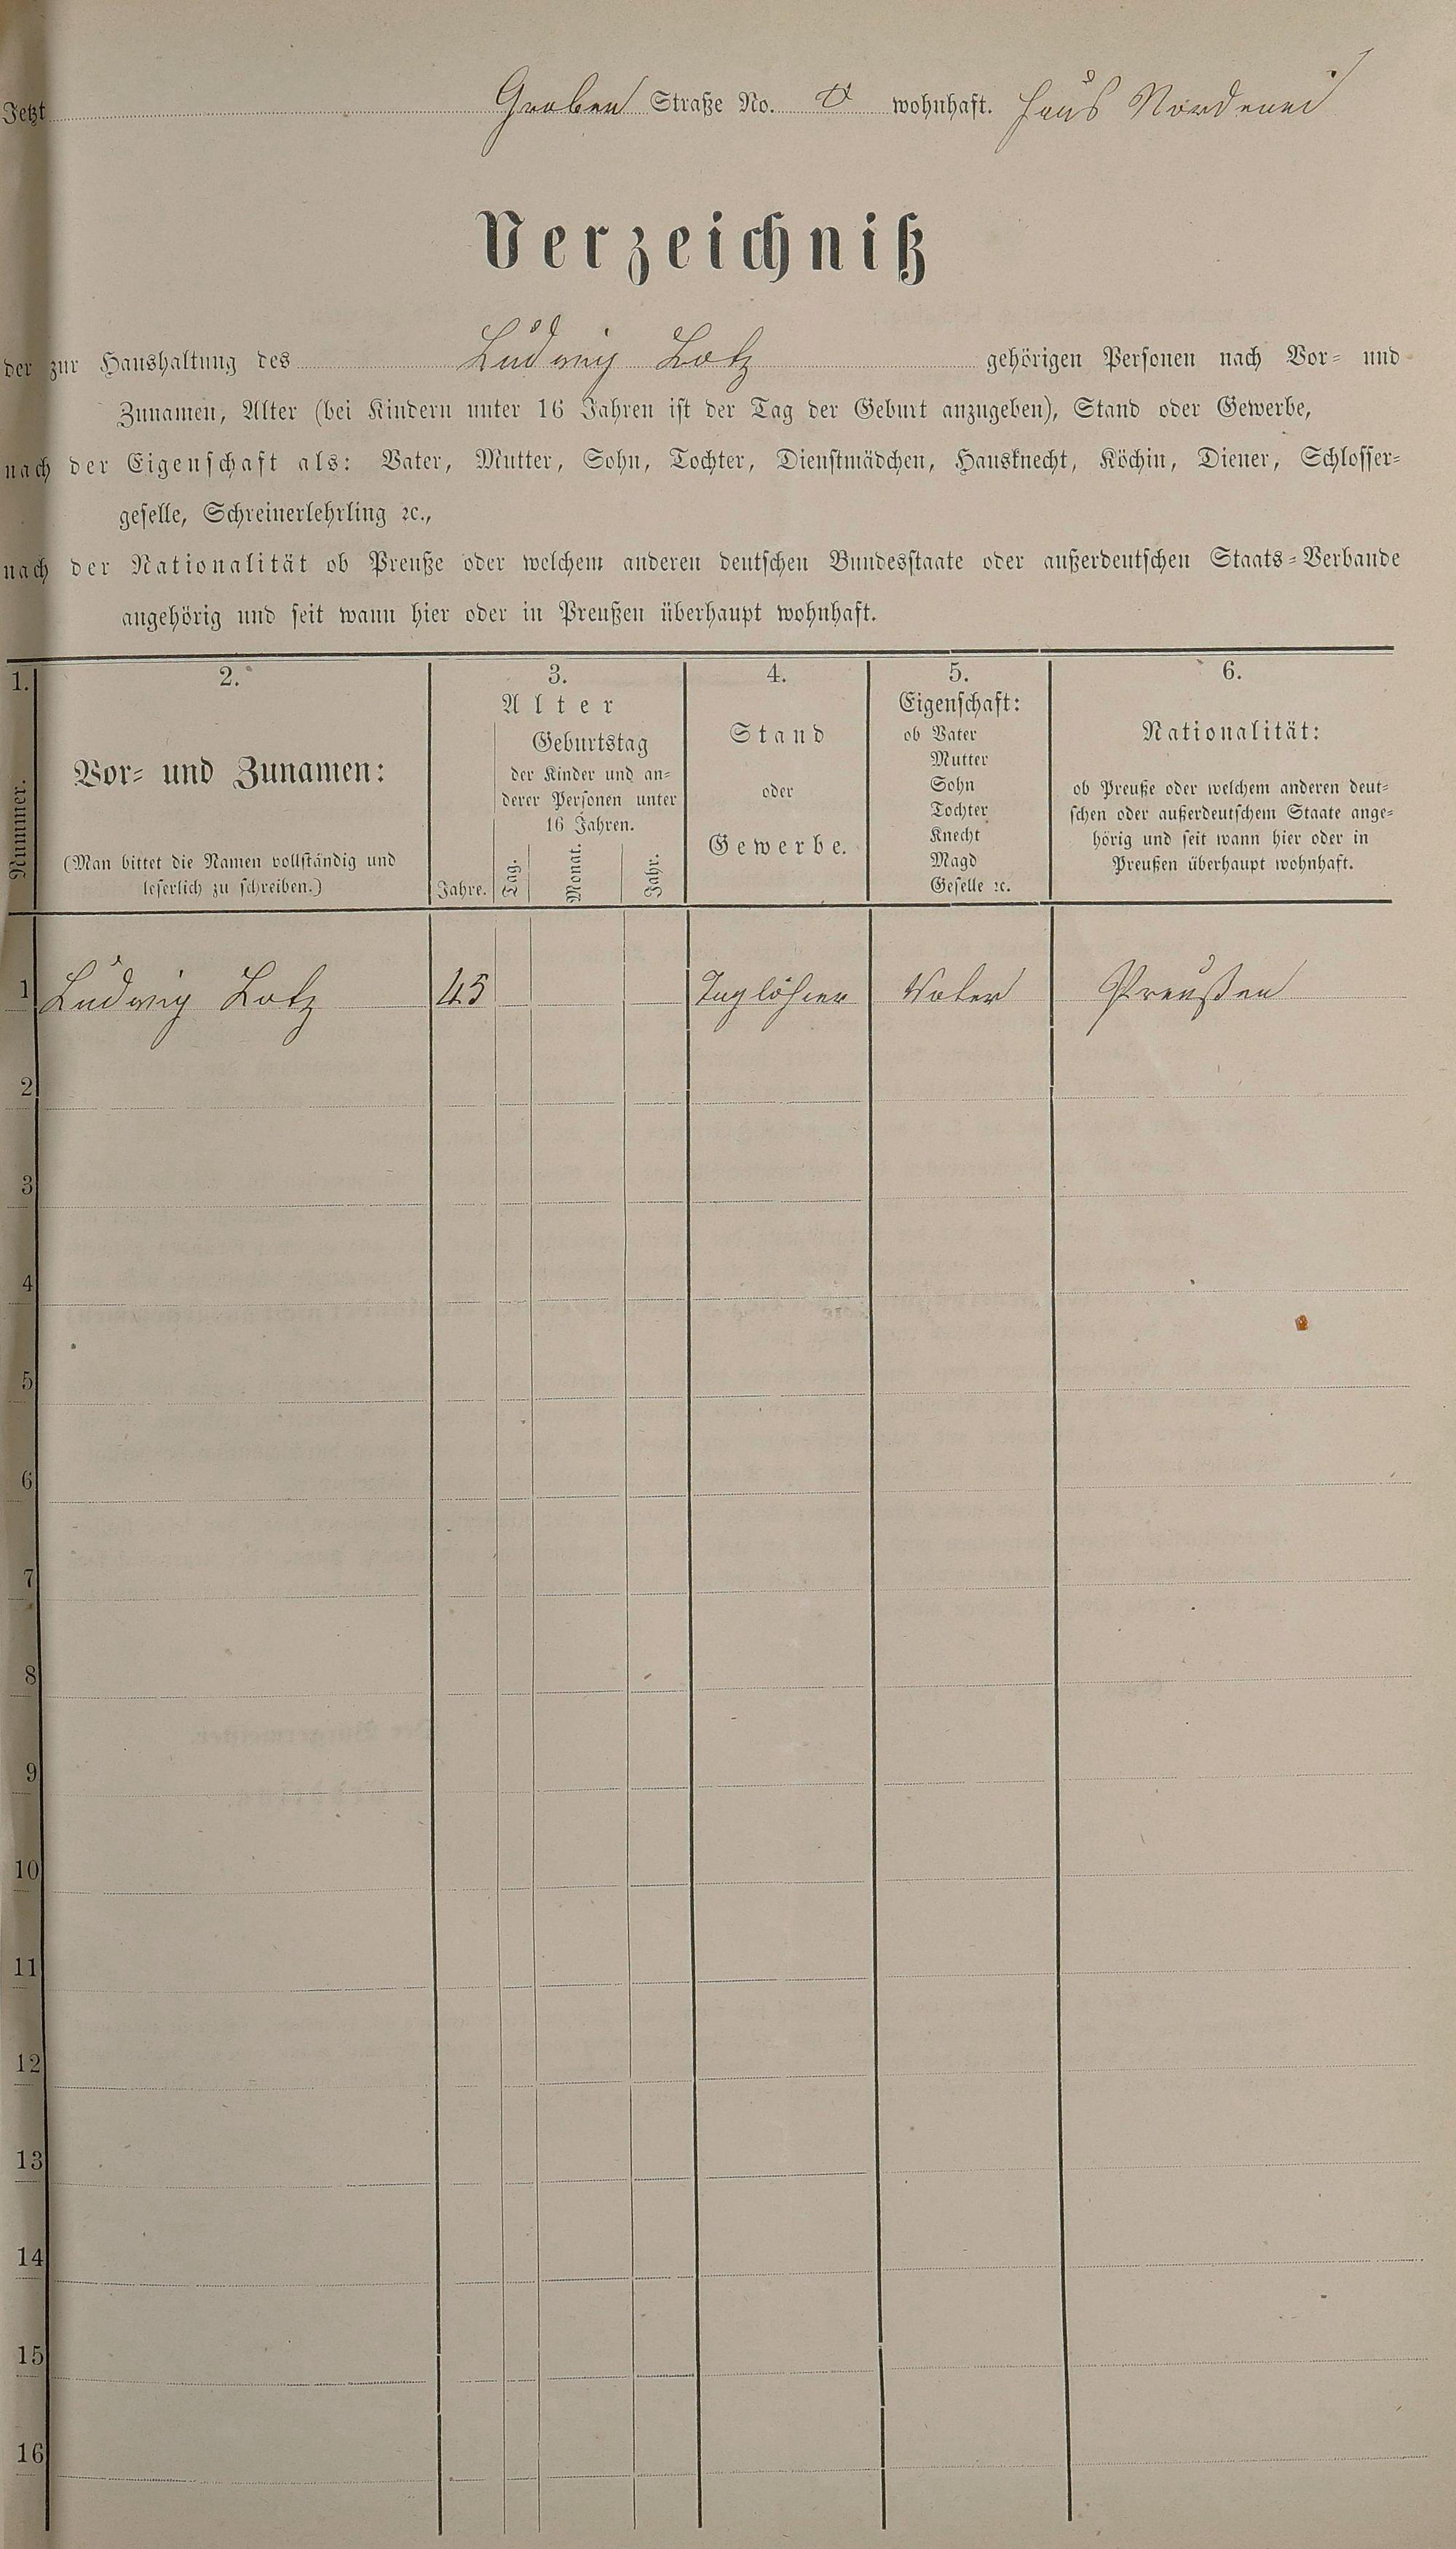 Jetzt Graben Straße No. wohnhaft. Haus Nordenei
Verzeichniß
der zur Haushaltung des Ludwig Lotz gehörigen Personen nach Vor- und
Zunamen, Alter (bei Kindern unter 16 Jahren ist der Tag der Geburt anzugeben), Stand oder Gewerbe,
nach der Eigenschaft als: Vater, Mutter, Sohn, Tochter, Dienstmädchen, Hausknecht, Köchin, Diener, Schlosser-
geselle, Schreinerlehrling ꝛc.,
nach der Nationalität ob Preuße oder welchem anderen deutschen Bundesstaate oder außerdeutschen Staats-Verbande
angehörig und seit wann hier oder in Preußen überhaupt wohnhaft.
1.
Nummer.
2.
Vor- und Zunamen:
(Man bittet die Namen vollständig und
leserlich zu schreiben.)
3.
Alter
Jahre.
Geburtstag
der Kinder und an-
derer Personen unter
16 Jahren.
Tag.
Monat.
Jahr.
4.
Stand
oder
Gewerbe.
5.
Eigenschaft:
ob Vater
Mutter
Sohn
Tochter
Knecht
Magd
Geselle ꝛc.
6.
Nationalität:
ob Preuße oder welchem anderen deut-
schen oder außerdeutschem Staate ange-
hörig und seit wann hier oder in
Preußen überhaupt wohnhaft.
1 Ludwig Lotz 45 Taglöhner Vater Preußen
2
3
4
5
6
7
8
9
10
11
12
13
14
15
16